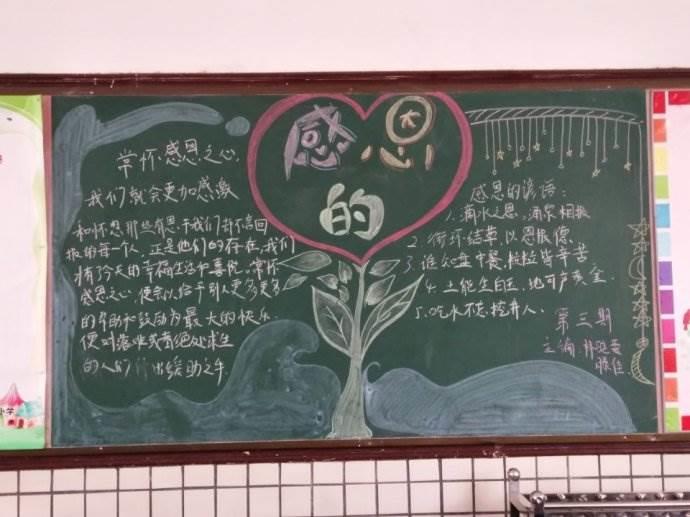 感恩
的
常怀感恩之心,
我们就会更加感激
和怀想那些有恩于我们却不言回
报的每一个人,正是他们的存在,我们
才有今天的幸福生活和喜悦。常怀
感恩之心,便会以给予别人更多更多
的帮助和鼓励为最大的快乐,
便对落难或者绝处求生
的人们 出援助之手.
感恩的谚语:
1、滴水之恩,涌泉相报
2、衔环结草,以恩报德.
3、谁知盘中餐,粒粒皆辛苦
4、土能生白玉,地可产黄金.
5、吃水不忘,挖井人.
第三期
主编:林
小学